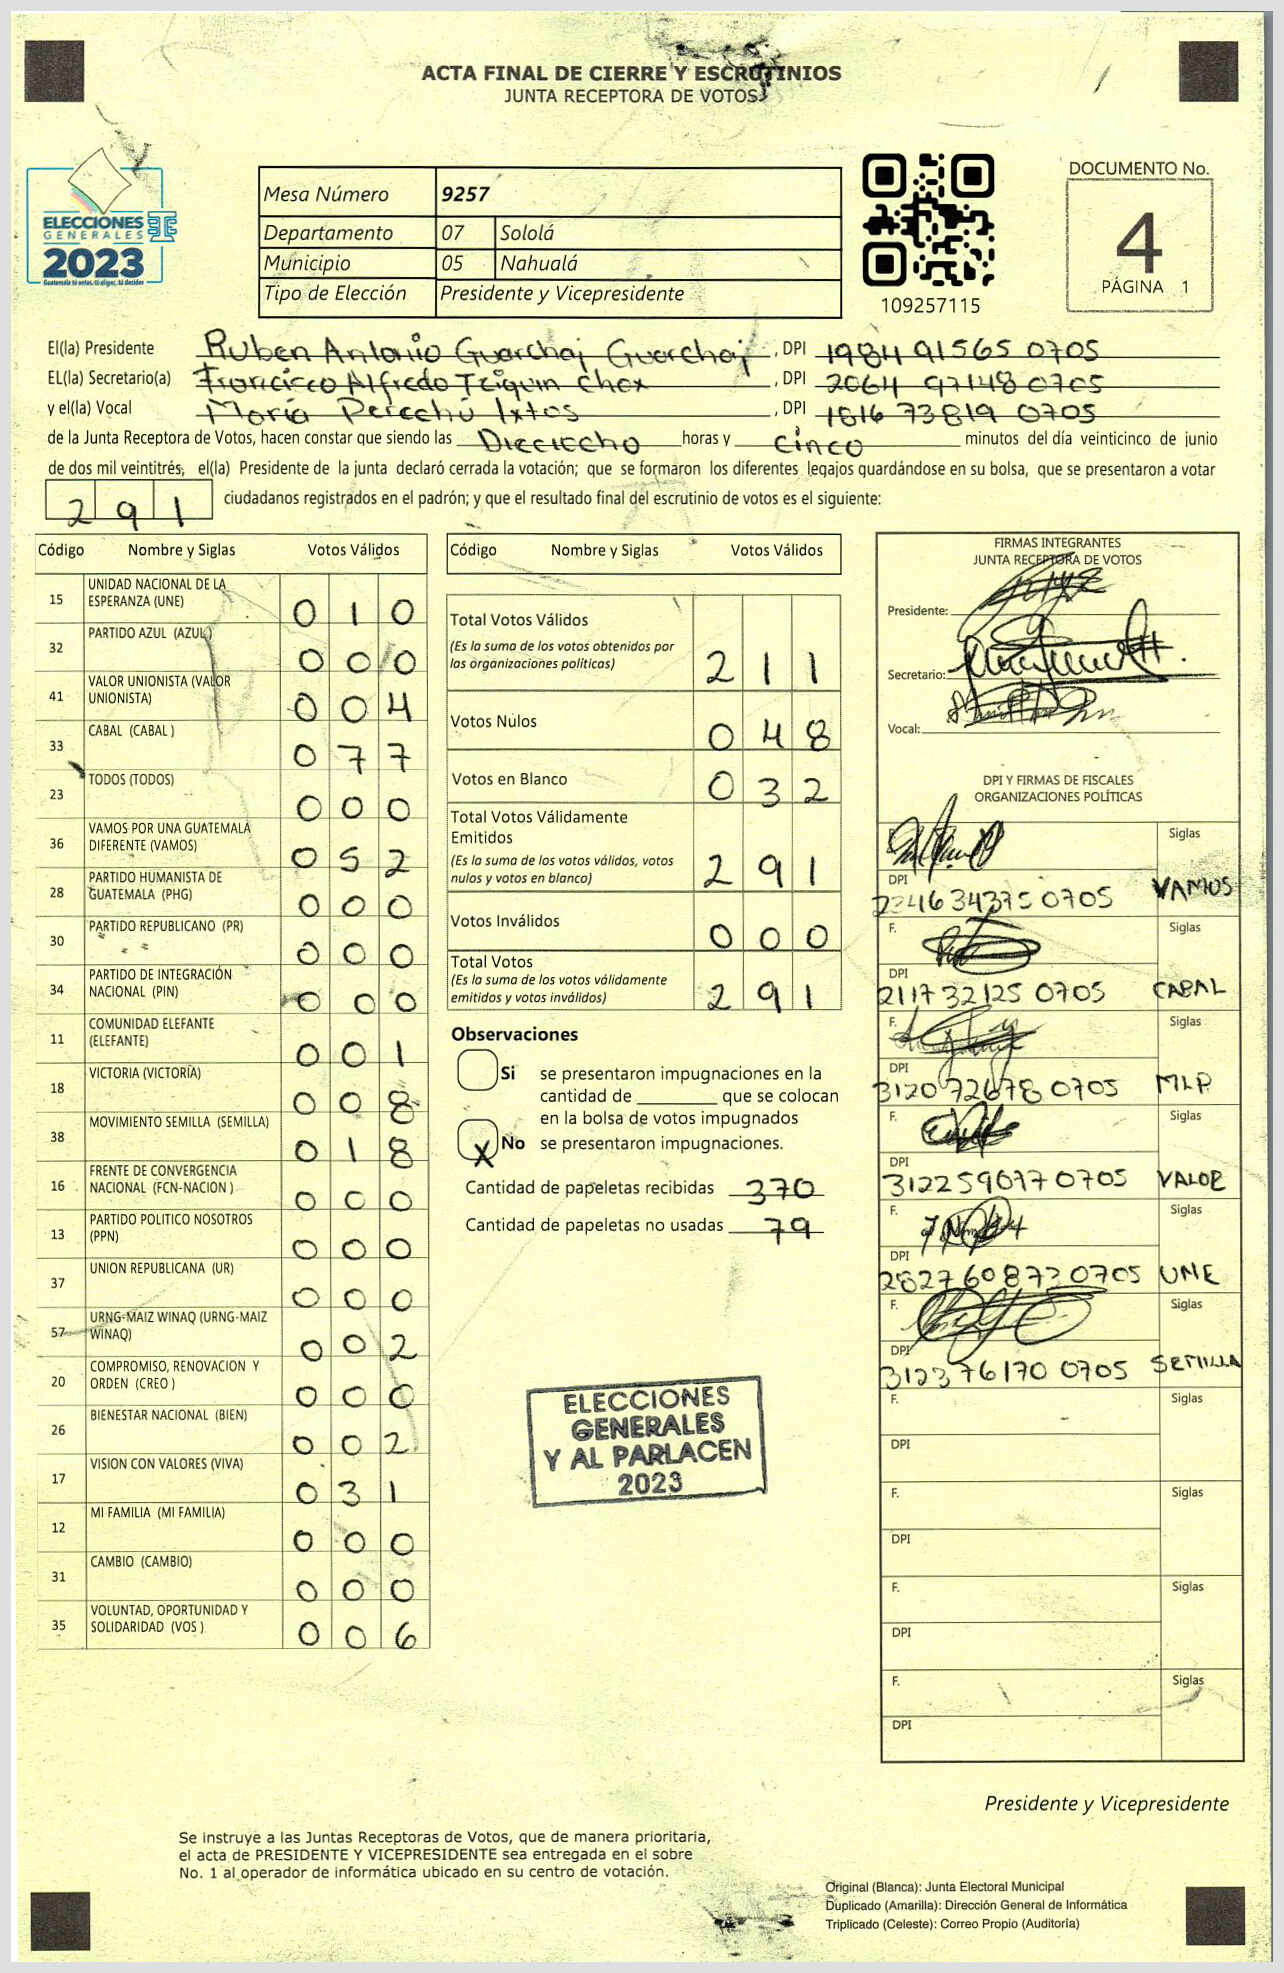 ACTA FINAL DE CIERRE Y ESCRUTINIOS
JUNTA RECEPTORA DE VOTOS
ELECCIONES
GENERALES
2023
Guatemala tú votas, tú eliges, tú decides
Mesa Número 9257
Departamento 07 Sololá
Municipio 05 Nahualá
Tipo de Elección Presidente y Vicepresidente
109257115
DOCUMENTO No.
4
PÁGINA 1
El(la) Presidente Ruben Antonio Guarchaj Guarchaj, DPI 1984 91565 0705
EL(la) Secretario(a) Francisco Alfredo Tziquin Chox, DPI 2064 97148 0705
y el(la) Vocal María Perechú Ixtos, DPI 1816 73819 0705
de la Junta Receptora de Votos, hacen constar que siendo las Dieciocho horas y cinco minutos del día veinticinco de junio
de dos mil veintitrés, el(la) Presidente de la junta declaró cerrada la votación; que se formaron los diferentes legajos guardándose en su bolsa, que se presentaron a votar
291 ciudadanos registrados en el padrón; y que el resultado final del escrutinio de votos es el siguiente:
Código Nombre y Siglas Votos Válidos
15 UNIDAD NACIONAL DE LA ESPERANZA (UNE) 010
32 PARTIDO AZUL (AZUL) 000
41 VALOR UNIONISTA (VALOR UNIONISTA) 004
33 CABAL (CABAL ) 077
23 TODOS (TODOS) 000
36 VAMOS POR UNA GUATEMALA DIFERENTE (VAMOS) 052
28 PARTIDO HUMANISTA DE GUATEMALA (PHG) 000
30 PARTIDO REPUBLICANO (PR) 000
34 PARTIDO DE INTEGRACIÓN NACIONAL (PIN) 000
11 COMUNIDAD ELEFANTE (ELEFANTE) 001
18 VICTORIA (VICTORIA) 008
38 MOVIMIENTO SEMILLA (SEMILLA) 018
16 FRENTE DE CONVERGENCIA NACIONAL (FCN-NACION ) 000
13 PARTIDO POLITICO NOSOTROS (PPN) 000
37 UNION REPUBLICANA (UR) 000
57 URNG-MAIZ WINAQ (URNG-MAIZ WINAQ) 002
20 COMPROMISO, RENOVACION Y ORDEN (CREO ) 000
26 BIENESTAR NACIONAL (BIEN) 002
17 VISION CON VALORES (VIVA) 031
12 MI FAMILIA (MI FAMILIA) 000
31 CAMBIO (CAMBIO) 000
35 VOLUNTAD, OPORTUNIDAD Y SOLIDARIDAD (VOS ) 006
Código Nombre y Siglas Votos Válidos
Total Votos Válidos
(Es la suma de los votos obtenidos por
las organizaciones políticas) 211
Votos Nulos 048
Votos en Blanco 032
Total Votos Válidamente
Emitidos
(Es la suma de los votos válidos, votos
nulos y votos en blanco) 291
Votos Inválidos 000
Total Votos
(Es la suma de los votos válidamente
emitidos y votos inválidos) 291
Observaciones
Si se presentaron impugnaciones en la
cantidad de ________ que se colocan
en la bolsa de votos impugnados
X No se presentaron impugnaciones.
Cantidad de papeletas recibidas 370
Cantidad de papeletas no usadas 79
ELECCIONES
GENERALES
Y AL PARLACEN
2023
FIRMAS INTEGRANTES
JUNTA RECEPTORA DE VOTOS
Presidente:
Secretario:
Vocal:
DPI Y FIRMAS DE FISCALES
ORGANIZACIONES POLÍTICAS
Siglas
DPI
2241634375 0705 VAMOS
F. Siglas
DPI
2117 32125 0705 CABAL
F. Siglas
DPI
3120 72678 0705 MLP
F. Siglas
DPI
3122590770705 VALOR
F. Siglas
DPI
2827608720705 UNE
F. Siglas
DPI
3123 76170 0705 SEMILLA
F. Siglas
DPI
F. Siglas
DPI
F. Siglas
DPI
F. Siglas
DPI
Presidente y Vicepresidente
Se instruye a las Juntas Receptoras de Votos, que de manera prioritaria,
el acta de PRESIDENTE Y VICEPRESIDENTE sea entregada en el sobre
No. 1 al operador de informática ubicado en su centro de votación.
Original (Blanca): Junta Electoral Municipal
Duplicado (Amarilla): Dirección General de Informática
Triplicado (Celeste): Correo Propio (Auditoría)